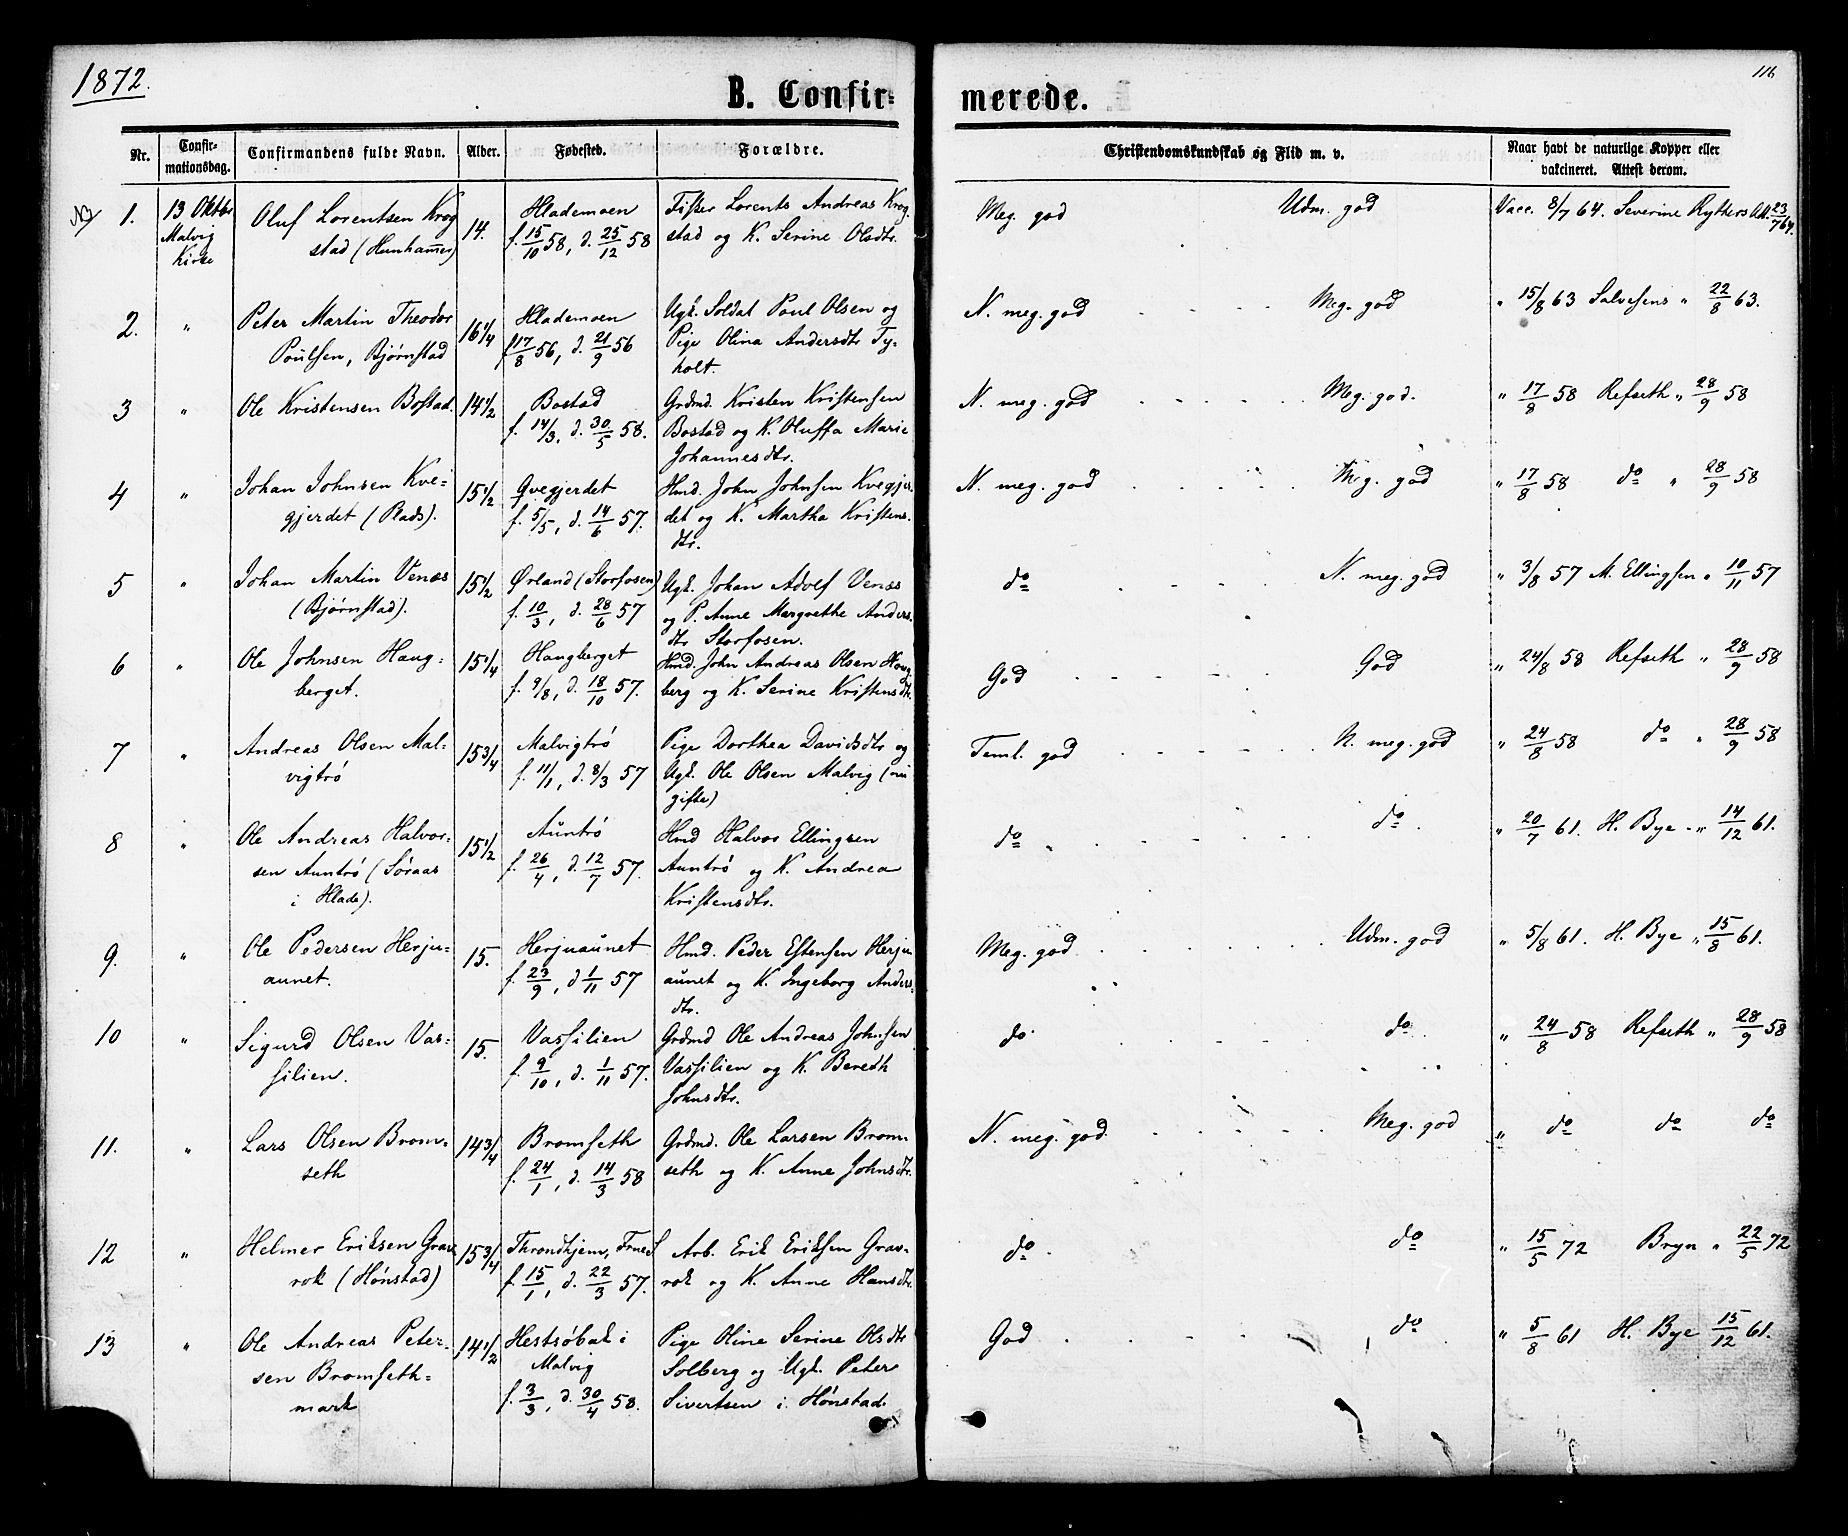 1872.
116
B. Confirmerede.
Nr. Confirmationsdag. Confirmandens fulde Navn. Alder. Fødested. Forældre. Christendomskundskab og Flid m. v. Naar havt de naturlige Kopper eller vakcineret. Attest derom.
1. 13 Oktbr Oluf Lorentsen Krog 14. Hlademoen Fisker Lorents Andreas Krog Meg. god Udm. god Vacc. 8/7 64. Severine Rythers Att. 23/7 64.
Malvig stad (Hunhamer) f. 15/10 58, d. 25/12 58 stad og K. Serine Olsdtr.
Kirke
2. " Peter Martin Theodor 16 1/4 Hlademoen Ugk. Soldat Poul Olsen og N. meg. god Meg. god " 15/8 63 Salvesens " 22/8 63.
Poulsen, Bjørnstad f 17/8 56, d. 21/9 56 Pige Olina Andersdtr Ty-
holt.
3 " Ole Kristensen Bostad. 14 1/2 Bostad Grdmd. Kristen Kristensen N. meg. god Meg. god. " 17/8 58 Refseth " 28/9 58
f. 14/3, d. 30/5 58. Bostad og K. Oluffa Marie
Johannesdtr.
4 " Johan Johnsen Kve- 15 1/2 Qvegjerdet Hmd. John Johnsen Kvegjer- N. meg. god Meg. god " 17/8 58 do " 28/9 58
gjerdet (Plads). f. 5/5, d. 14/6 57. det og K. Martha Kristens-
dtr.
5 " Johan Martin Venæs 15 1/2 Ørland (Storfosen) Ugk. Johan Adolf Venæs do N. meg. god " 3/8 57 M. Ellingsen " 10/11 57
(Bjørnstad). f. 10/3, d. 28/6 57 og P. Anne Margrethe Anders-
dtr Storfosen.
6 " Ole Johnsen Haug- 15 1/4 Haugberget Hmd. John Andreas Olsen Haug God God " 24/8 58 Refseth " 28/9 58
berget. f. 9/8, d. 18/10 57. berg og K. Serine Kristensdtr.
7 " Andreas Olsen Mal- 15 3/4 Malvigtrø Pige Dorthea Davidsdtr og Teml. god N. meg. god " 24/8 58 do " 28/9 58
vigtrø f. 11/1, d. 8/3 57 Ugk. Ole Olsen Malvig (nu
gifte)
8 " Ole Andreas Halvor- 15 1/2 Auntrø Hmd Halvor Ellingsen do " do " 20/7 61. H. Bye " 14/12 61.
sen Auntrø (Søraas f. 26/4, d. 12/7 57. Auntrø og K. Andrea
i Hlade). Kristensdtr.
9. " Ole Pedersen Herju- 15. Herjuaunet Hmd. Peder Estensen Herju Meg. god Udm. god " 5/8 61. H. Bye " 15/8 61.
aunet. f. 23/9, d 1/11 57 aunet og K. Ingeborg Anders-
dtr.
10 " Sigurd Olsen Vas- 15. Vassilien Grdmd Ole Andreas Johnsen do do " 24/8 58 Refseth " 28/9 58
silien. f. 9/10, d. 1/11 57. Vassilien og K. Bereth
Johnsdtr.
11. " Lars Olsen Brom- 14 3/4 Bromseth Grdmd. Ole Larsen Brom N. meg. god. Meg. god " do do do
seth f. 24/1, d. 14/3 58 seth og K. Anne Johnsdtr.
12 " Helmer Eriksen Grav 15 3/4 Throndhjem, Arb. Erik Eriksen Grav- do do " 15/5 72 Bryn " 22/5 72
rok (Hønstad) f. 15/1, d. 22/3 57. rok og K. Anne Hansdtr.
13 " Ole Andreas Peter- 14 1/2 Hestsøbak i Pige Oline Serine Olsdtr God do " 5/8 61 H. Bye 15/12 61.
sen Bromseth- Malvig Solberg og Ugk. Peter
mark f. 3/3, d. 30/4 58. Sivertsen i Hønstad